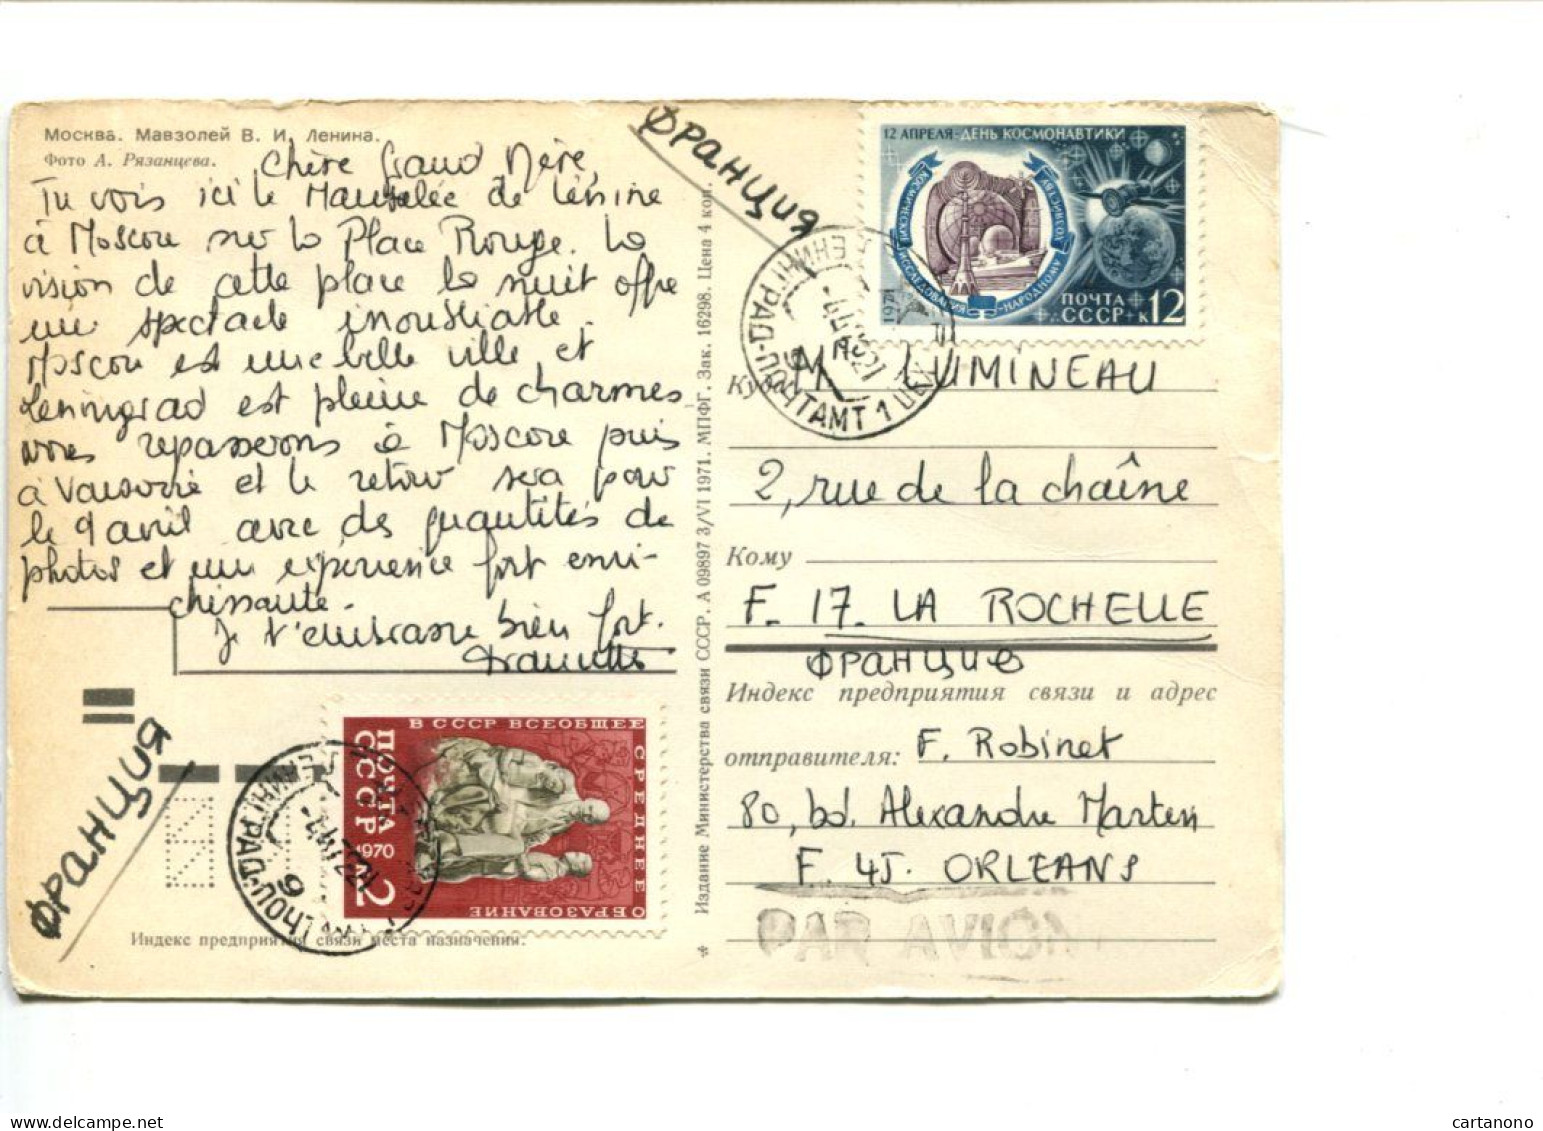 Москва. Мавзолей В. И. Ленина.
Фото А. Рязанцева.
Chère Grand Mère,
Tu vois ici le Mausolée de Lénine
à Moscou sur la Place Rouge. La
vision de cette place la nuit offre
un spectacle inoubliable.
Moscou est une belle ville et
Leningrad est pleine de charmes
nous repasserons à Moscou puis
à Varsovie et le retour sera pour
le 9 avril avec des quantités de
photos et une expérience fort enri-
chissante.
Je t'embrasse bien fort.
Франция
Франция
В СССР ВСЕОБЩЕЕ
СРЕДНЕЕ
ОБРАЗОВАНИЕ
ПОЧТА
СССР
1970
2
к
ЛЕНИНГРАД-ПОЧТАМТ
Индекс предприятия связи места назначения:
* Издание Министерства связи СССР. А 09897 3/VI 1971. МПФГ. Зак. 16298. Цена 4 коп.
12 АПРЕЛЯ-ДЕНЬ КОСМОНАВТИКИ
КОСМИЧЕСКИЕ
ИССЛЕДОВАНИЯ-
НАРОДНОМУ
ХОЗЯЙСТВУ
1971
ПОЧТА
СССР к 12
ЛЕНИНГРАД-ПОЧТАМТ 1 ЦЕХ
Куда
M. LUMINEAU
2, rue de la chaîne
Кому
F. 17. LA ROCHELLE
Франция
Индекс предприятия связи и адрес
отправителя: F. Robinet
80, bd. Alexandre Martin
F. 45. ORLEANS
PAR AVION
delcampe.net
cartanono